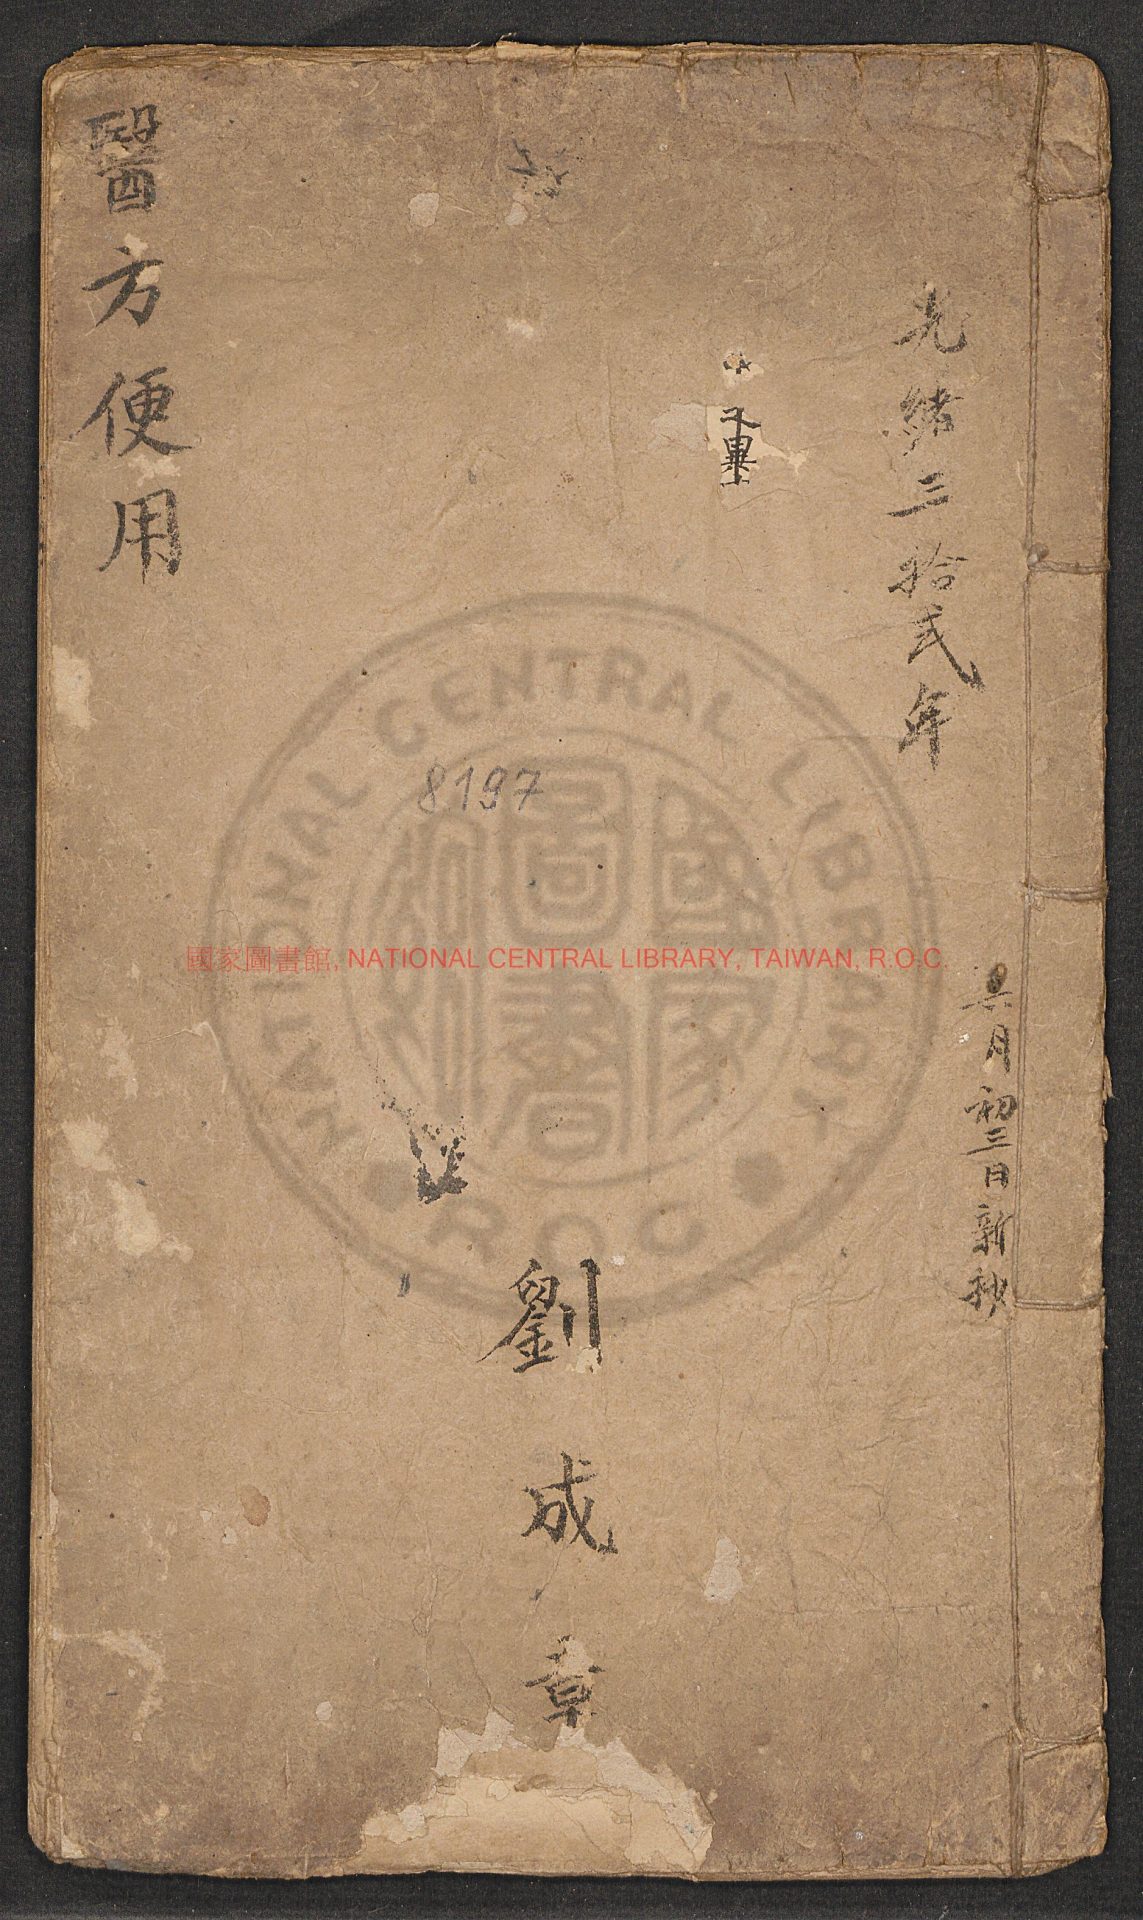 光緒三拾弍年
月初三日新抄
畢
劉成章
8197
醫方便用
國家圖書館, NATIONAL CENTRAL LIBRARY, TAIWAN, R.O.C.
NATIONAL CENTRAL LIBRARY
R.O.C
國家圖書